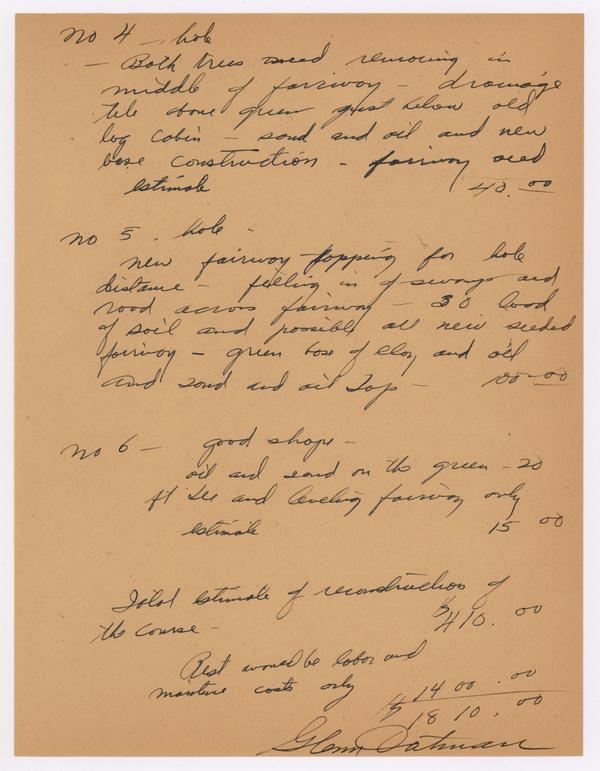 No 4 - hole
- Both trees need removing in
middle of fairway - drainage
tile above green just below old
log cabin - sand and oil and new
base construction - fairway seed
estimate 40.00
No 5. hole -
new fairway topping for hole
distance - filling in of and
road across fairway - 30 load
of soil and possible all new seeded
fairway - green base of clay and oil
and sand and oil Top - 100-00
No 6 - good shape -
oil and sand on the green - 20
ft Tee and leveling fairway only
estimate 15 00
Total estimate of reconstruction of
the course - $410.00
Rest would be labor and
costs only $1400.00
$1810.00
Glenn Oatman